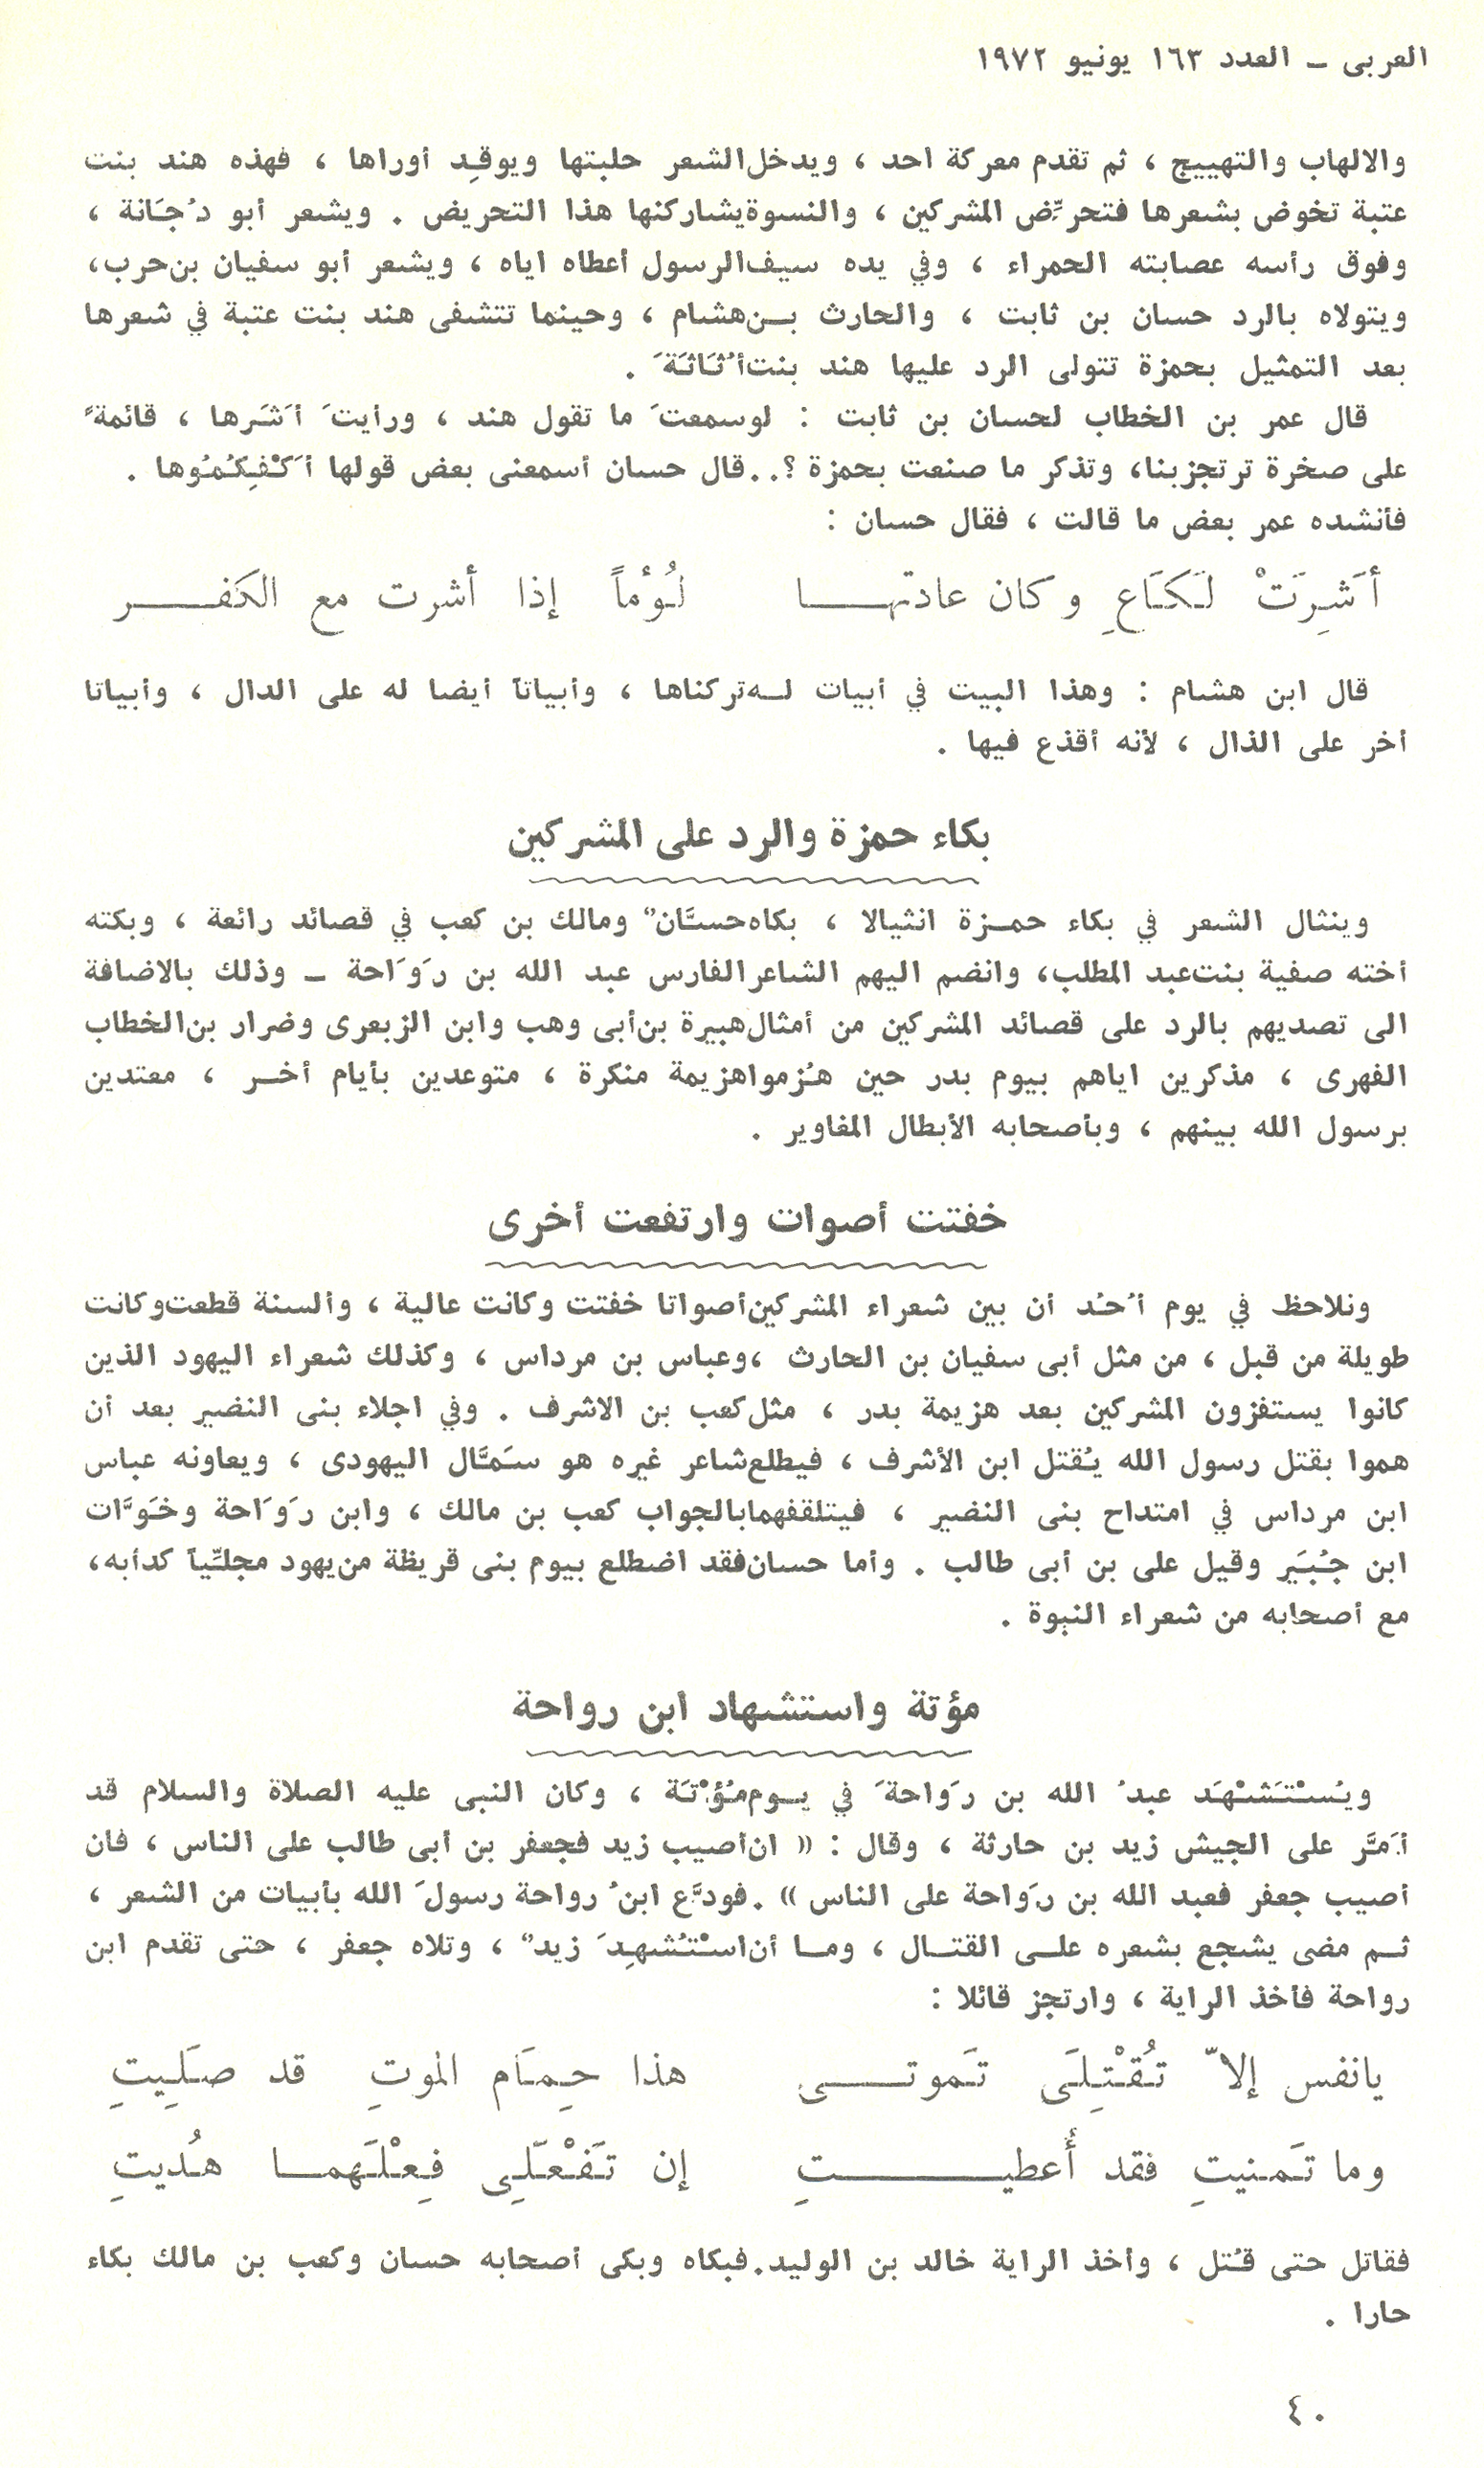 العربى – العدد ١٦٣ يونيو ١٩٧٢
والالهاب والتهييج ، ثم تقدم معركة احد ، ويدخل الشعر حلبتها ويوقِد أوراها ، فهذه هند بنت
عتبة تخوض بشعرها فتحرِّض المشركين ، والنسوة يشاركنها هذا التحريض . ويشعر أبو دُجَانة ،
وفوق رأسه عصابته الحمراء ، وفي يده سيف الرسول أعطاه اياه ، ويشعر أبو سفيان بن حرب،
ويتولاه بالرد حسان بن ثابت ، والحارث بن هشام ، وحينما تتشفى هند بنت عتبة في شعرها
بعد التمثيل بحمزة تتولى الرد عليها هند بنت أُثَاثَةَ .
قال عمر بن الخطاب لحسان بن ثابت : لو سمعتَ ما تقول هند ، ورأيتَ أَشَرها ، قائمةً
على صخرة ترتجز بنا، وتذكر ما صنعت بحمزة ؟.. قال حسان أسمعنى بعض قولها أَكْفِكُمُوها .
فأنشده عمر بعض ما قالت ، فقال حسان :
أَشِرَتْ لَكَاعِ وكان عادتها لُؤْماً إذا أشرت مع الكَفر
قال ابن هشام : وهذا البيت في أبيات له تركناها ، وأبياتاً أيضا له على الدال ، وأبياتا
أخر على الذال ، لأنه أقذع فيها .
بكاء حمزة والرد على المشركين
وينثال الشعر في بكاء حمزة انثيالا ، بكاه حسَّانٌ ومالك بن كعب في قصائد رائعة ، وبكته
أخته صفية بنت عبد المطلب، وانضم اليهم الشاعر الفارس عبد الله بن رَوَاحة – وذلك بالاضافة
الى تصديهم بالرد على قصائد المشركين من أمثال هبيرة بن أبى وهب وابن الزبعرى وضرار بن الخطاب
الفهرى ، مذكرين اياهم بيوم بدر حين هُزموا هزيمة منكرة ، متوعدين بأيام أخر ، معتدين
برسول الله بينهم ، وبأصحابه الأبطال المغاوير .
خفتت أصوات وارتفعت أخرى
ونلاحظ في يوم أُحُد أن بين شعراء المشركين أصواتا خفتت وكانت عالية ، وألسنة قطعت وكانت
طويلة من قبل ، من مثل أبى سفيان بن الحارث ، وعباس بن مرداس ، وكذلك شعراء اليهود الذين
كانوا يستفزون المشركين بعد هزيمة بدر ، مثل كعب بن الاشرف . وفي اجلاء بنى النضير بعد أن
هموا بقتل رسول الله يُقتل ابن الأشرف ، فيطلع شاعر غيره هو سَمَّال اليهودى ، ويعاونه عباس
ابن مرداس في امتداح بنى النضير ، فيتلقفهما بالجواب كعب بن مالك ، وابن رَوَاحة وخَوَّات
ابن جُبَير وقيل على بن أبى طالب . وأما حسان فقد اضطلع بيوم بنى قريظة من يهود مجلِّياً كدأبه،
مع أصحابه من شعراء النبوة .
مؤتة واستشهاد ابن رواحة
ويُسْتَشْهَد عبدُ الله بن رَواحةَ في يوم مُؤْتَة ، وكان النبى عليه الصلاة والسلام قد
أمَّر على الجيش زيد بن حارثة ، وقال : « ان أصيب زيد فجعفر بن أبى طالب على الناس ، فان
أصيب جعفر فعبد الله بن رَواحة على الناس » . فودَّع ابنُ رواحة رسولَ الله بأبيات من الشعر ،
ثم مضى يشجع بشعره على القتال ، وما أن اسْتُشهِدَ زيدٌ ، وتلاه جعفر ، حتى تقدم ابن
رواحة فأخذ الراية ، وارتجز قائلا :
يانفس إلاّ تُقْتِلَى تَموتى هذا حِمَام الموتِ قد صَلِيتِ
وما تَمنيتِ فقد أُعطيتِ إن تَفْعَلِى فِعْلَهما هُديتِ
فقاتل حتى قُتل ، وأخذ الراية خالد بن الوليد. فبكاه وبكى أصحابه حسان وكعب بن مالك بكاء
حارا .
٤٠